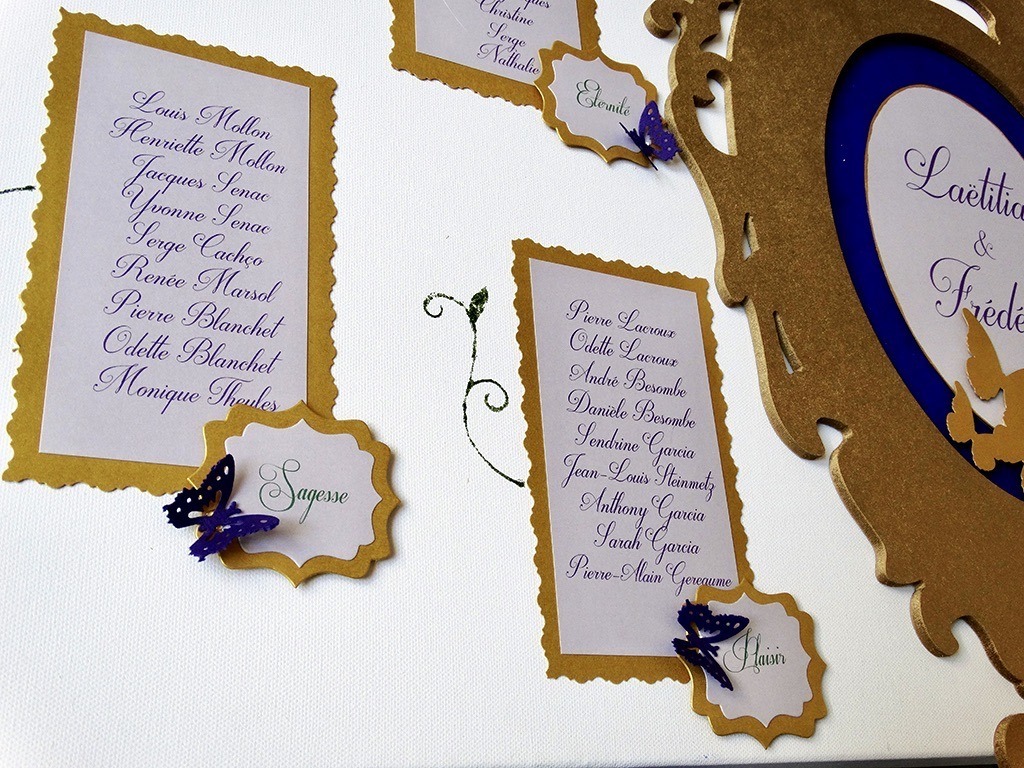 Louis Mollon
Henriette Mollon
Jacques Senac
Yvonne Senac
Serge Cachço
Renée Marsol
Pierre Blanchet
Odette Blanchet
Monique Theules
Sagesse
Christine
Serge
Nathalie
Eternité
Pierre Lacroux
Odette Lacroux
André Besombe
Danièle Besombe
Sendrine Garcia
Jean-Louis Steinmetz
Anthony Garcia
Sarah Garcia
Pierre-Alain Gereaume
Plaisir
Laëtitia
&